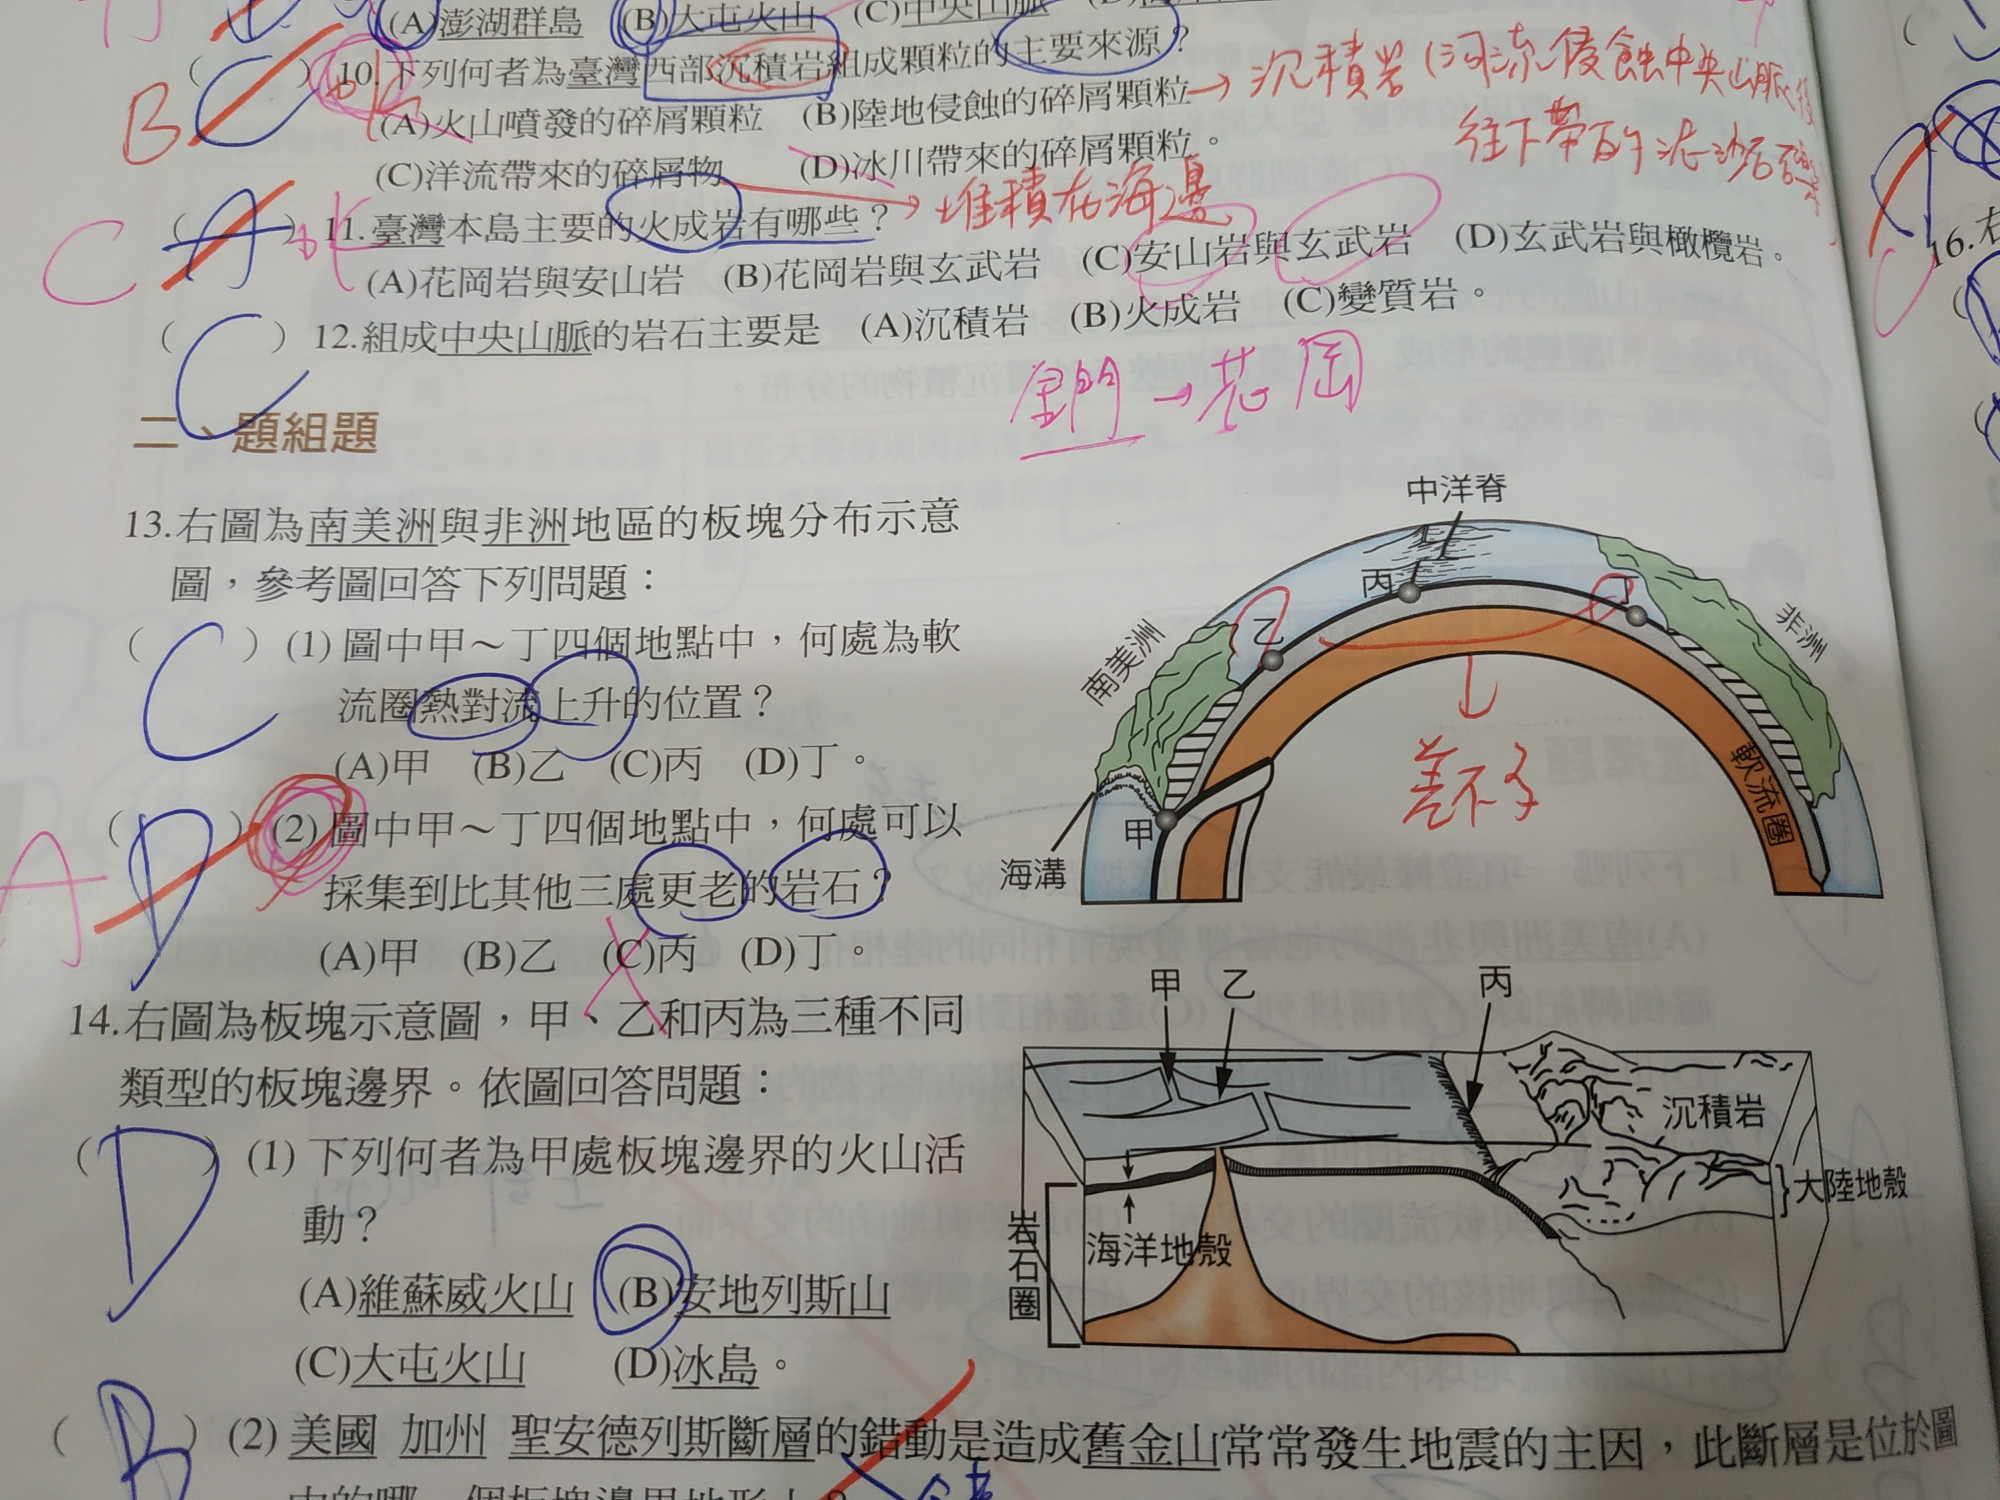 (A)澎湖群島 (B)大屯火山 (C)中央山脈
B C ( ) 10.下列何者為臺灣西部沉積岩組成顆粒的主要來源?
(A)火山噴發的碎屑顆粒 (B)陸地侵蝕的碎屑顆粒→沉積岩(河流侵蝕中央山脈後
往下帶的泥沙石礫
(C)洋流帶來的碎屑物 (D)冰川帶來的碎屑顆粒。
→堆積在海邊
C A ( ) 11.臺灣本島主要的火成岩有哪些?
(A)花岡岩與安山岩 (B)花岡岩與玄武岩 (C)安山岩與玄武岩 (D)玄武岩與橄欖岩。
( C ) 12.組成中央山脈的岩石主要是 (A)沉積岩 (B)火成岩 (C)變質岩。
金門→花岡
二、題組題
13.右圖為南美洲與非洲地區的板塊分布示意
圖,參考圖回答下列問題:
( C ) (1)圖中甲～丁四個地點中,何處為軟
流圈熱對流上升的位置?
(A)甲 (B)乙 (C)丙 (D)丁。
A ( D ) (2)圖中甲～丁四個地點中,何處可以
採集到比其他三處更老的岩石?
(A)甲 (B)乙 (C)丙 (D)丁。
中洋脊
丙
丁
乙
南美洲
非洲
甲
海溝
軟流圈
差不多
14.右圖為板塊示意圖,甲、乙和丙為三種不同
類型的板塊邊界。依圖回答問題:
( D ) (1)下列何者為甲處板塊邊界的火山活
動?
(A)維蘇威火山 (B)安地列斯山
(C)大屯火山 (D)冰島。
甲 乙 丙
沉積岩
大陸地殼
海洋地殼
岩石圈
( B ) (2)美國 加州 聖安德列斯斷層的錯動是造成舊金山常常發生地震的主因,此斷層是位於圖
中的哪一個板塊邊界地形上?
16.右